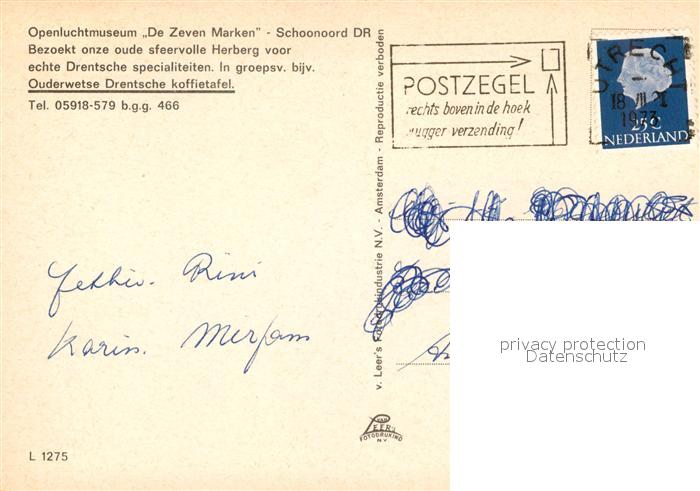 Openluchtmuseum „De Zeven Marken" - Schoonoord DR
Bezoekt onze oude sfeervolle Herberg voor
echte Drentsche specialiteiten. In groepsv. bijv.
Ouderwetse Drentsche koffietafel.
Tel. 05918-579 b.g.g. 466
POSTZEGEL
rechts boven in de hoek
vlugger verzending!
UTRECHT
1973
25 c
NEDERLAND
Rini
Karin. Mirjam
v. Leer's Fotodrukindustrie N.V. - Amsterdam - Reproductie verboden
privacy protection
Datenschutz
VAN
LEER'S
FOTODRUKIND
N.V.
L 1275